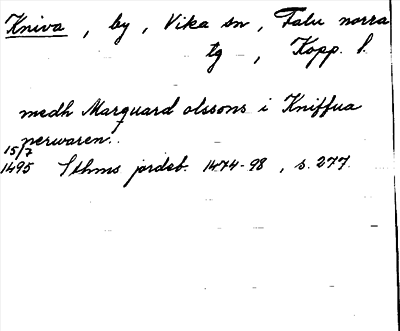 Kniva, by, Vika sn, Falu norra
tg, Kopp. l.
medh Marquard olssons i Kniffua
perwaren.
15/7
1495 Sthms jordeb. 1474-98, s. 277.